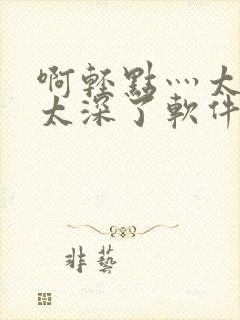 啊轻點灬太
太深了軟件
非藝